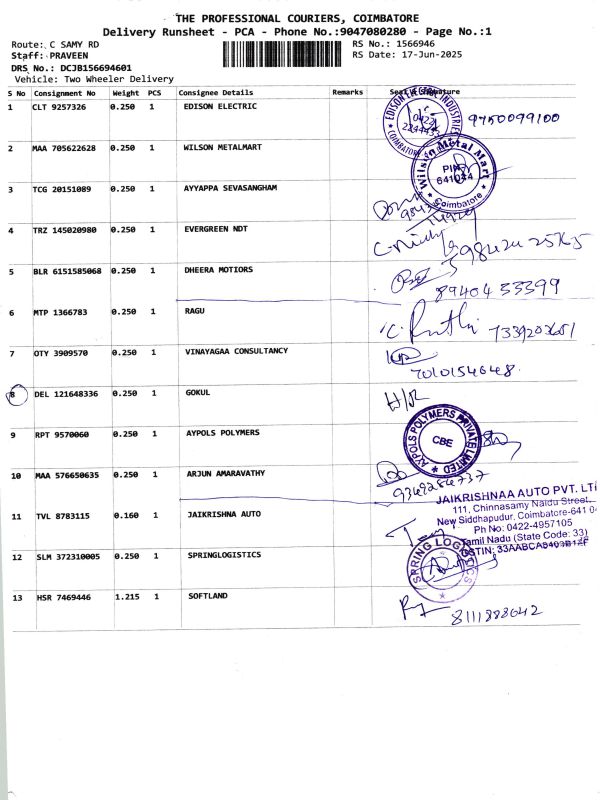 THE PROFESSIONAL COURIERS, COIMBATORE
Delivery Runsheet - PCA - Phone No.:9047080280 - Page No.:1
Route: C SAMY RD
RS No.: 1566946
Staff: PRAVEEN
RS Date: 17-Jun-2025
DRS No.: DCJB156694601
Vehicle: Two Wheeler Delivery
S No Consignment No Weight PCS Consignee Details Remarks Seal & Signature
1 CLT 9257326 0.250 1 EDISON ELECTRIC
EDISON ELECTRICAL INDUSTRIES
0422
COIMBATORE
9750099100
2 MAA 705622628 0.250 1 WILSON METALMART
Wilson Metal Mart
PIN
Coimbatore
3 TCG 20151089 0.250 1 AYYAPPA SEVASANGHAM
4 TRZ 145020980 0.250 1 EVERGREEN NDT
5 BLR 6151585068 0.250 1 DHEERA MOTIORS
8940433399
6 MTP 1366783 0.250 1 RAGU
7339203651
7 OTY 3909570 0.250 1 VINAYAGAA CONSULTANCY
7010154648
8 DEL 121648336 0.250 1 GOKUL
H/R
9 RPT 9570060 0.250 1 AYPOLS POLYMERS
AYPOLS POLYMERS PRIVATE LIMITED
CBE
10 MAA 576650635 0.250 1 ARJUN AMARAVATHY
11 TVL 8783115 0.160 1 JAIKRISHNA AUTO
JAIKRISHNAA AUTO PVT. LT
111, Chinnasamy Naidu Street,
New Siddhapudur, Coimbatore-641 0
Ph No: 0422-4957105
Tamil Nadu (State Code: 33)
GSTIN:
12 SLM 372310005 0.250 1 SPRINGLOGISTICS
SPRING LOGISTICS
13 HSR 7469446 1.215 1 SOFTLAND
8111888642